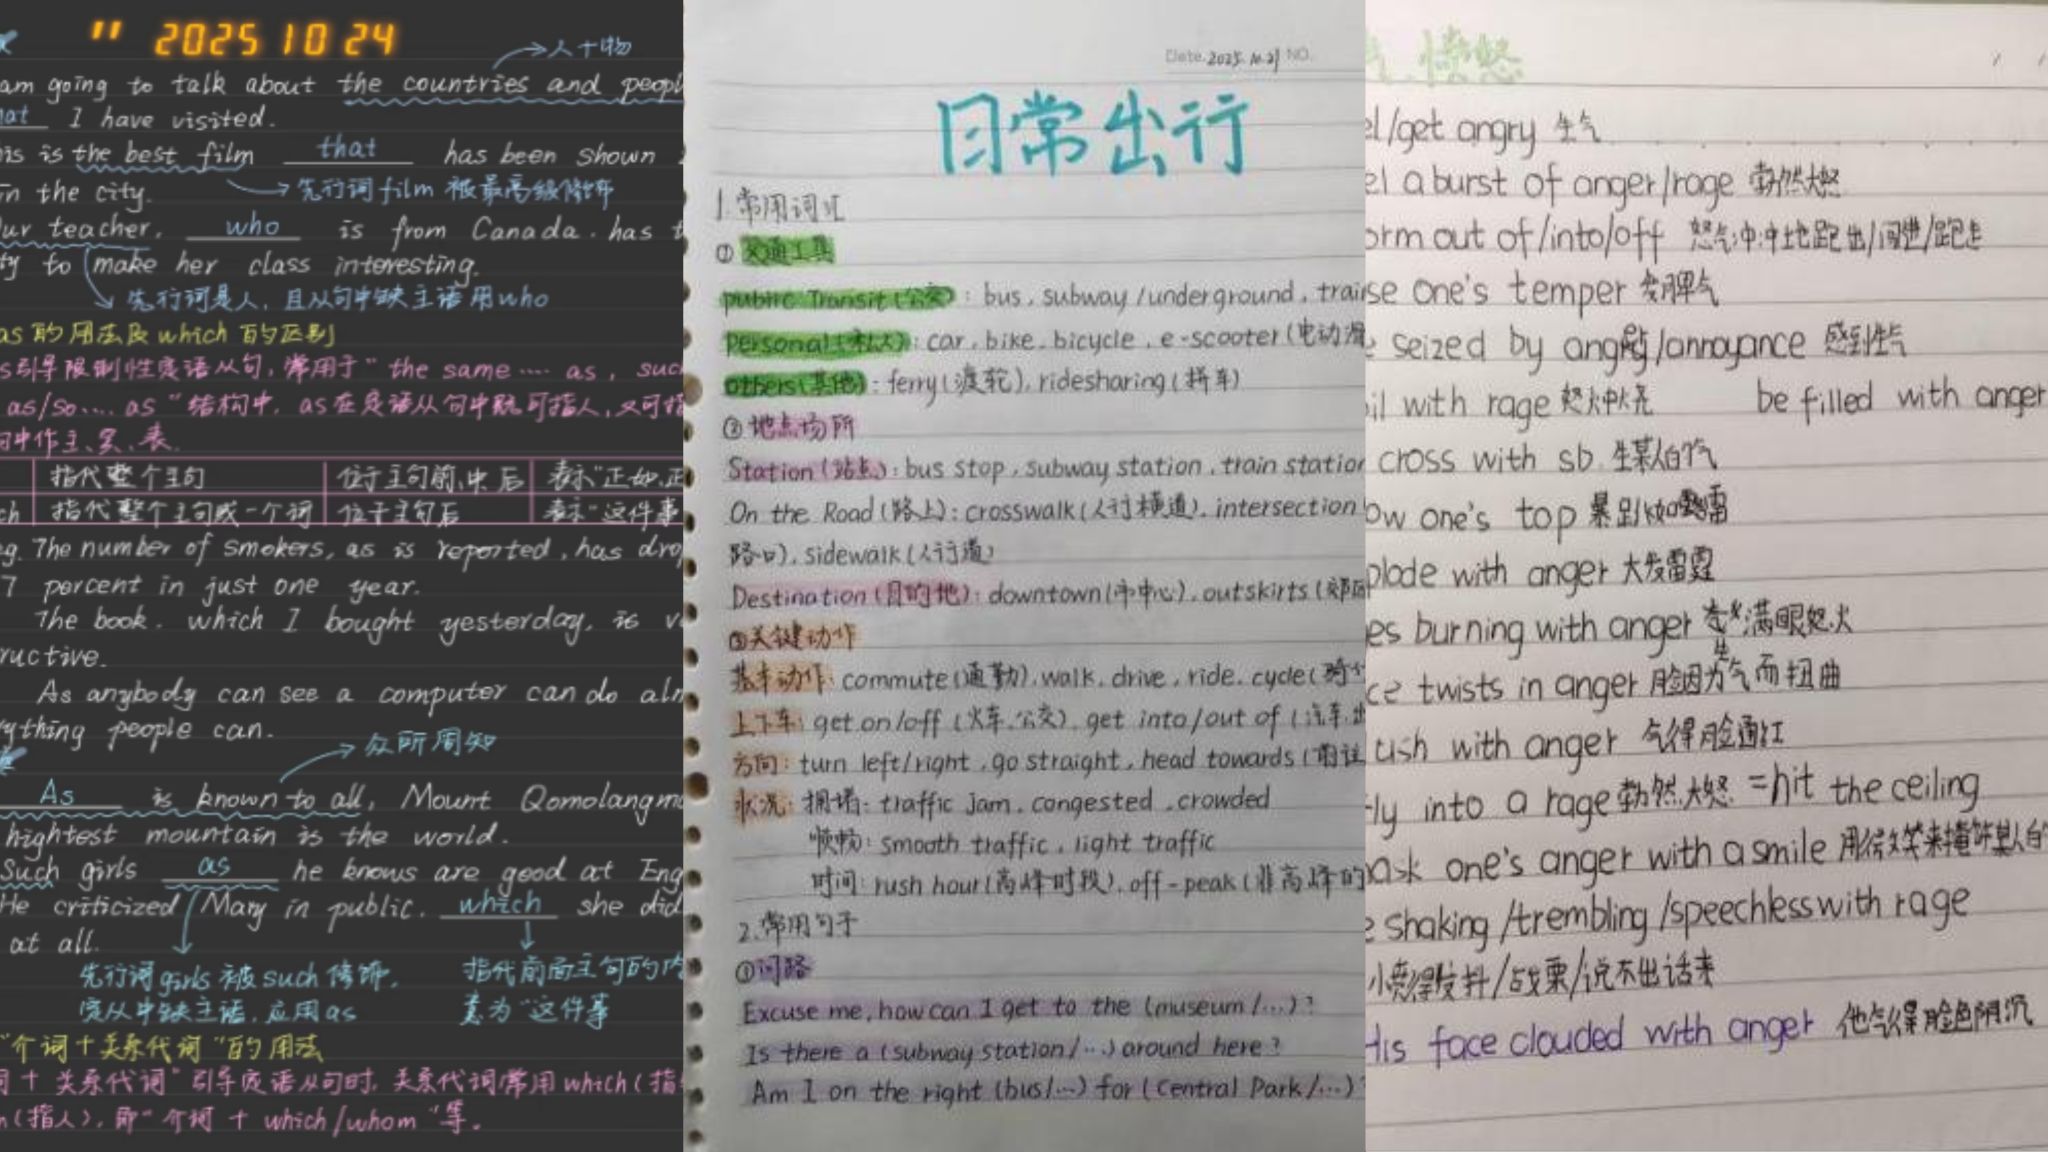 " 2025 10 24
人+物
am going to talk about the countries and peopl
hat I have visited.
his is the best film that has been shown
in the city.
先行词film 被最高级修饰
Our teacher, who is from Canada, has t
ty to make her class interesting.
先行词是人，且从句中缺主语 用who
as 的用法及 which 的区别
s引导限制性定语从句，常用于"the same .... as, suc
as/so.... as"结构中，as在定语从句中既可指人，又可指
句中作主、宾、表.
指代整个主句 位于主句前、中、后 表示"正如,正
ch 指代整个主句或一个词 位于主句后 表示"这件事
eg. The number of smokers, as is reported, has dro
7 percent in just one year.
The book. which I bought yesterday, is v
ructive.
As anybody can see a computer can do alm
ything people can.
众所周知
As is known to all, Mount Qomolangma
hightest mountain is the world.
Such girls as he knows are good at Eng
He criticized Mary in public. which she did
at all.
先行词 girls 被 such 修饰，
定从中缺主语，应用as
指代前面主句的内
意为"这件事
"介词+关系代词"的用法
词+关系代词"引导定语从句时，关系代词常用 which (指
m(指人)，即"介词+ which/whom"等.
Date. 2025.10.21 NO.
日常出行
1.常用词汇
① 交通工具
public Transit (公交): bus, subway/underground, train
personal (私人): car, bike, bicycle, e-scooter (电动滑
others (其他): ferry (渡轮), ridesharing (拼车)
② 地点场所
Station (站点): bus stop, subway station, train station
On the Road (路上): crosswalk (人行横道), intersection
路口), sidewalk (人行道)
Destination (目的地): downtown (市中心), outskirts (郊区
③关键动作
基本动作: commute (通勤), walk, drive, ride, cycle (骑
上下车: get on/off (火车、公交), get into/out of (汽车、出
方向: turn left/right, go straight, head towards (前往
状况: 拥堵: traffic jam, congested, crowded
顺畅: smooth traffic, light traffic
时间: rush hour (高峰时段), off-peak (非高峰的
2.常用句子
①问路
Excuse me, how can I get to the (museum/...)?
Is there a (subway station/...) around here?
Am I on the right (bus/...) for (Central Park/...)?
愤怒
el/get angry 生气
el a burst of anger/rage 勃然大怒
orm out of/into/off 怒气冲冲地跑出/闯进/跑走
se one's temper 发脾气
e seized by anger/annoyance 感到生气
il with rage 怒火中烧 be filled with anger
cross with sb. 生某人的气
ow one's top 暴跳如雷
plode with anger 大发雷霆
es burning with anger 满眼怒火
ce twists in anger 脸因为生气而扭曲
ush with anger 气得脸通红
fly into a rage 勃然大怒 = hit the ceiling
ask one's anger with a smile 用微笑来掩饰某人的
e shaking/trembling/speechless with rage
愤得发抖/战栗/说不出话来
His face clouded with anger 他气得脸色阴沉